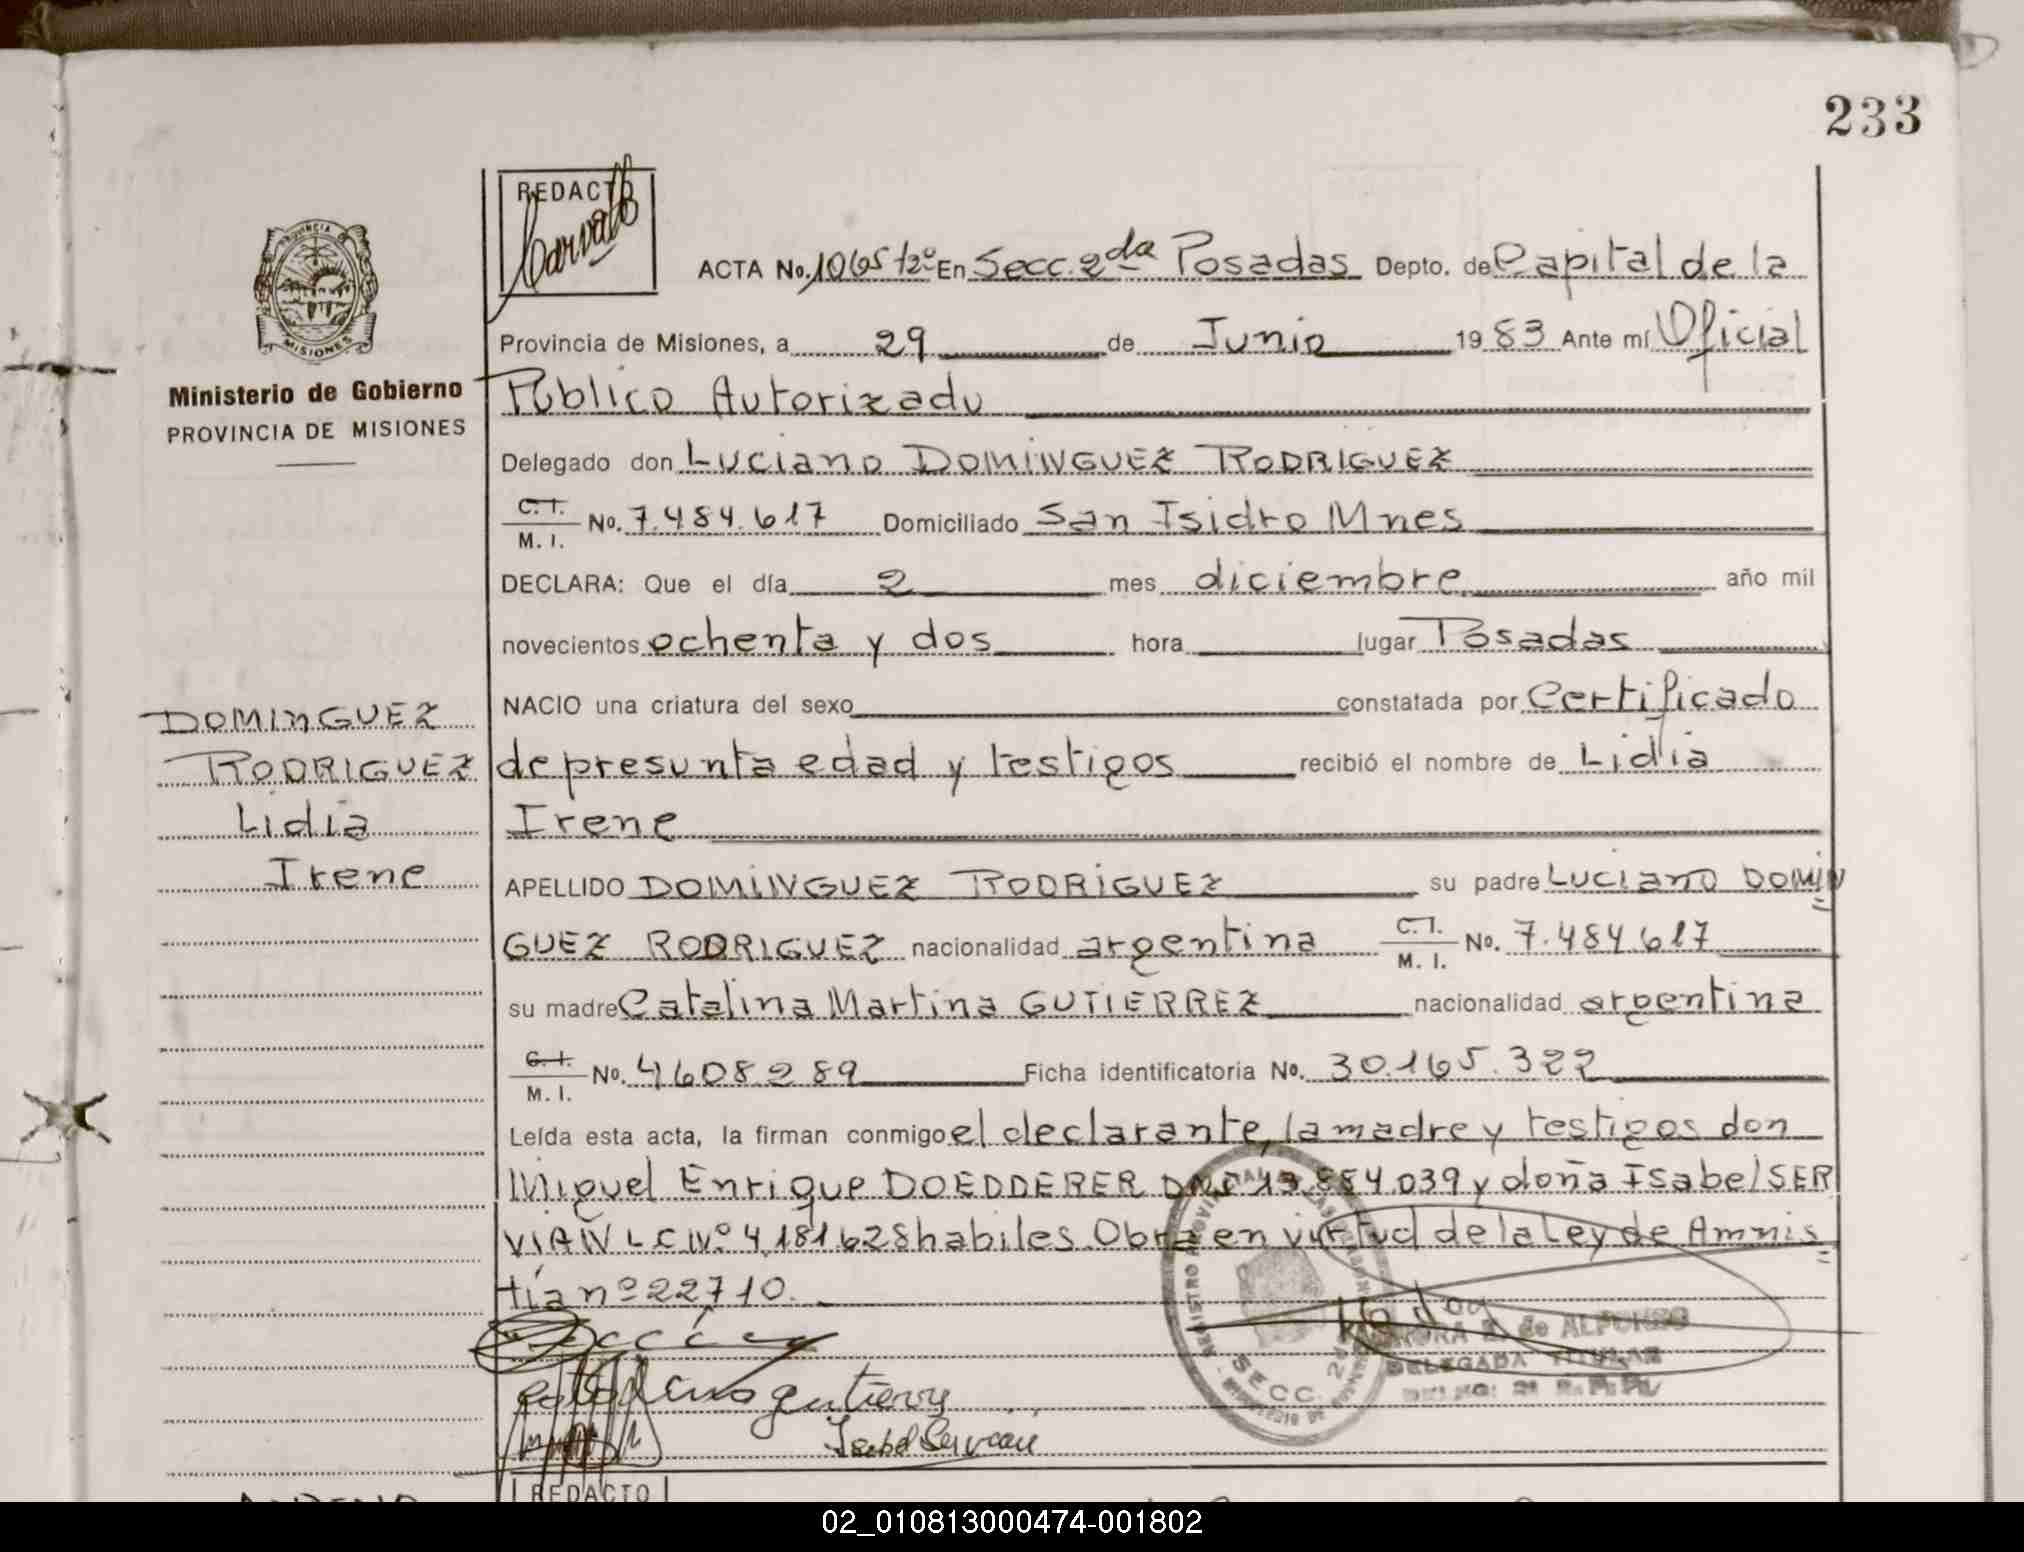 233
REDACTO
ACTA No. 1065 t2º En Secc. 2da Posadas Depto. de Capital de la
PROVINCIA DE MISIONES
Provincia de Misiones, a 29 de Junio 1983 Ante mí Oficial
Ministerio de Gobierno
PROVINCIA DE MISIONES
Público Autorizado
Delegado don Luciano DOMINGUEZ RODRIGUEZ
C. I. M. I. No. 7.484.617 Domiciliado San Isidro Mnes
DECLARA: Que el día 2 mes diciembre año mil
novecientos ochenta y dos hora lugar Posadas
NACIO una criatura del sexo constatada por Certificado
DOMINGUEZ
RODRIGUEZ
Lidia
Irene
de presunta edad y testigos recibió el nombre de Lidia
Irene
APELLIDO DOMINGUEZ RODRIGUEZ su padre Luciano DOMIN
GUEZ RODRIGUEZ nacionalidad argentina C. I. M. I. No. 7.484.617
su madre Catalina Martina GUTIERREZ nacionalidad argentina
C. I. M. I. No. 4608289 Ficha identificatoria No. 30.165.322
Leída esta acta, la firman conmigo el declarante, la madre y testigos don
Miguel Enrique DOEDDERER DNI 13.884.039 y doña Isabel SER
VIAN LC Nº 4.181.628 habiles. Obra en virtud de la Ley de Amnis
tía nº 22710.
gutierrez
Isabel Servian
SECC. 2da
de ALFONSO
DELEGADA TITULAR
REDACTO
02_010813000474-001802